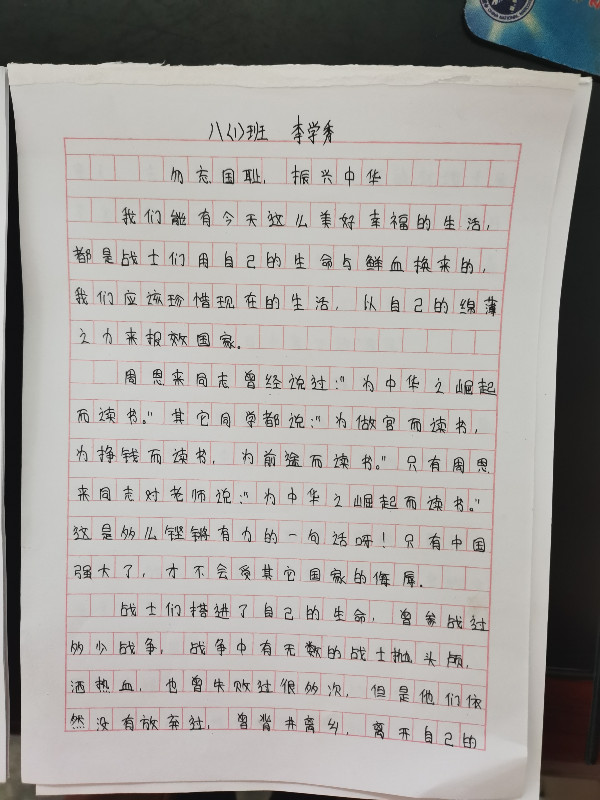 八(1)班 李学秀
勿忘国耻,振兴中华
我们能有今天这么美好幸福的生活,
都是战士们用自己的生命与鲜血换来的,
我们应该珍惜现在的生活,以自己的绵薄
之力来报效国家。
周恩来同志曾经说过:"为中华之崛起
而读书。"其它同学都说:"为做官而读书,
为挣钱而读书,为前途而读书。"只有周恩
来同志对老师说:"为中华之崛起而读书。"
这是多么铿锵有力的一句话呀!只有中国
强大了,才不会受其它国家的侮辱。
战士们搭进了自己的生命,曾参战过
多少战争,战争中有无数的战士抛头颅,
洒热血,也曾失败过很多次,但是他们依
然没有放弃过,曾背井离乡,离开自己的